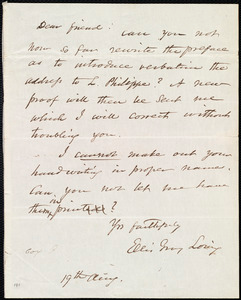 Dear friend: Can you not
now so far rewrite the preface
as to introduce verbatim the
address to L. Philippe? A new
proof will then be sent me
which I will correct without
troubling you.
I cannot make out your
handwriting in proper names.
Can you not let me have
them in print
Yrs faithfully
Ellis Gray Loring
19th Aug.